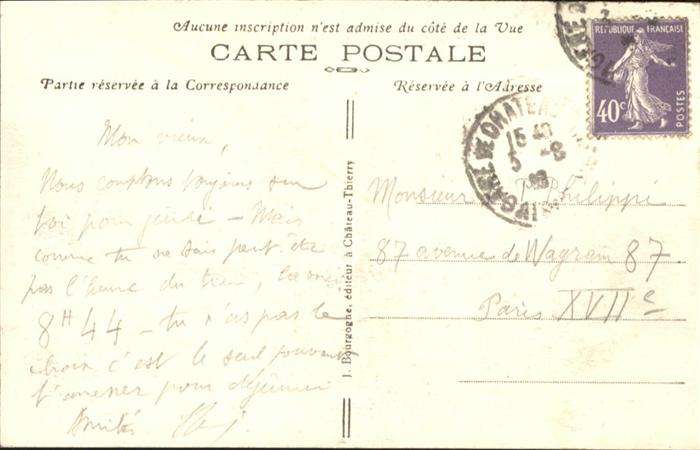 Aucune inscription n'est admise du côté de la Vue
CARTE POSTALE
Partie réservée à la Correspondance
Réservée à l'Adresse
RÉPUBLIQUE FRANÇAISE
40c
POSTES
GARE DE CHATEAU
15 40
5 -8
Mon vieux,
Nous comptons toujours sur
toi pour jeudi - Mais
comme tu ne sais peut être
pas l'heure du train, la voici
8H44 - tu n'as pas le
choix c'est le seul pouvant
t'amener pour déjeuner
Amitiés
J. Bourgogne, éditeur à Château-Thierry
Monsieur Philippi
87 avenue de Wagram 87
Paris XVIIe